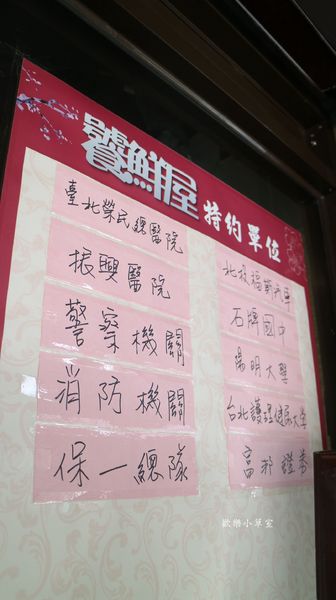 饗鮮屋 特約單位
臺北榮民總醫院
振興醫院
警察機關
消防機關
保一總隊
北投福斯汽車
石牌國中
陽明大學
台北護理健康大学
富邦證券
歡樂小草室